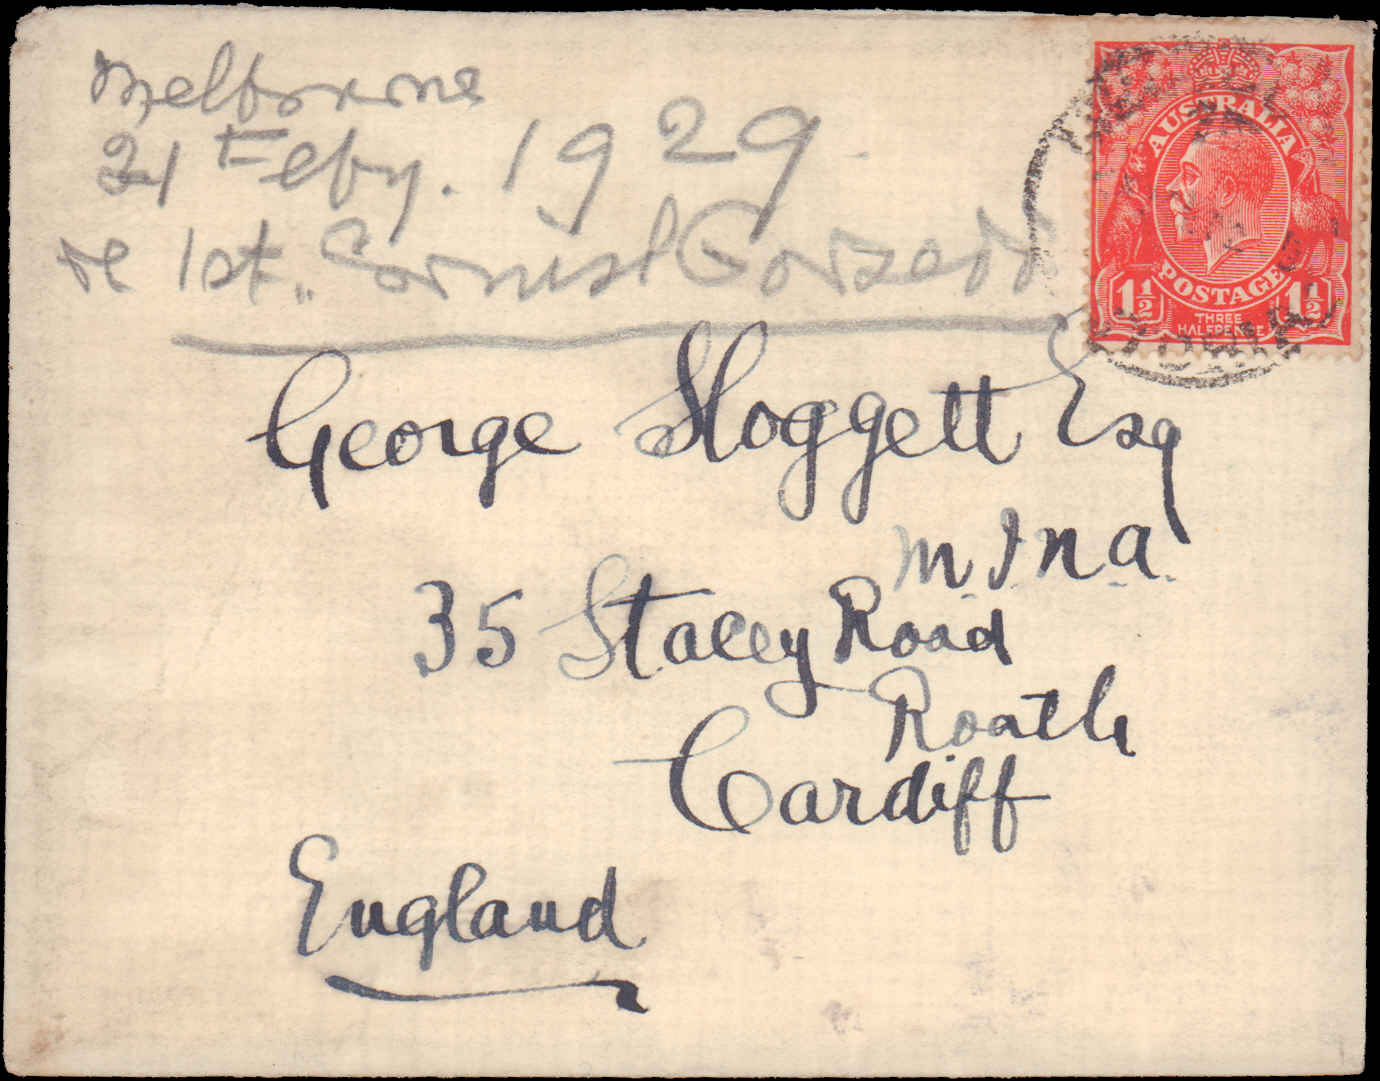 Melbourne
21 Feby. 1929
re 1st. Cornish Gorsedd
AUSTRALIA
POSTAGE
1½ THREE HALFPENCE 1½
George Sloggett Esq
M.I.N.A.
35 Stacey Road
Roath
Cardiff
England